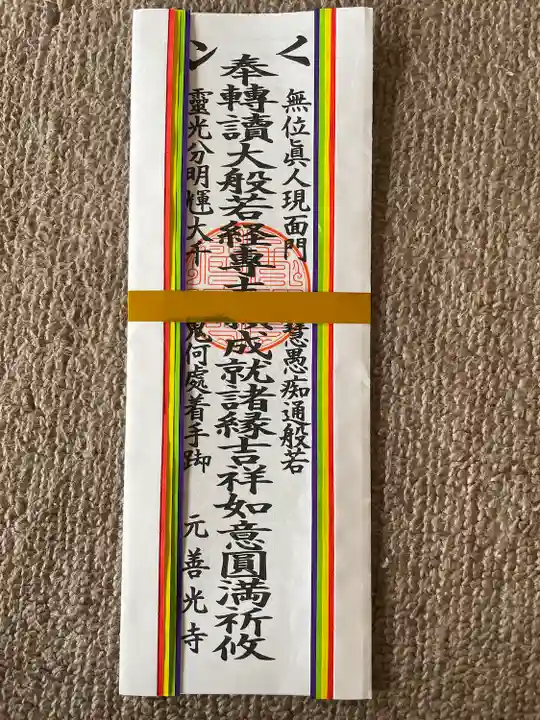 無位眞人現面門 慧愚痴通般若
奉轉讀大般若経專 成就諸縁吉祥如意圓満祈攸
靈光分明輝大千 鬼何處着手脚
元善光寺